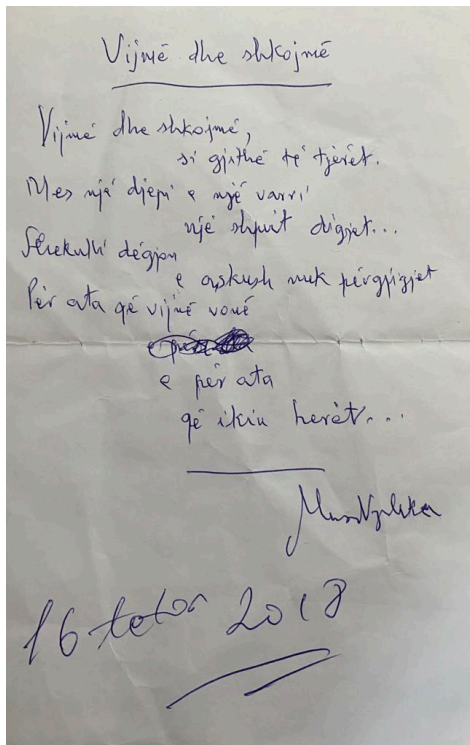 Vijmë dhe shkojmë
Vijmë dhe shkojmë,
si gjithë të tjerët.
Mes një djepi e një varri
një shpirt digjet...
Shekulli dëgjon
e askush nuk përgjigjet
Për ata që vijnë vonë
e për ata
që ikin herët...
16 tetor 2018